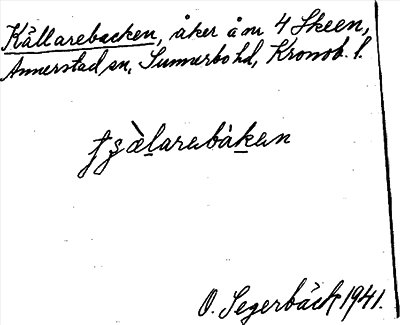 Källarebacken, åker å nr 4 Skeen,
Annerstad sn, Sunnerbo hd, Kronob. l.
tʂàlarebàken
O. Segerbäck 1941.